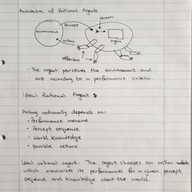 Architecture of Rational Agents
environment
percepts
sensors
?
actions
effectors
- The agent perceives the environment and
acts according to a performance criteria
Ideal Rational Agents
Acting rationally depends on:
• Performance measure
• Percept sequence
• World knowledge
• possible actions
Ideal rational agent: The agent chooses an action
which maximizes its performance for a given percept
sequence and knowledge about the world.